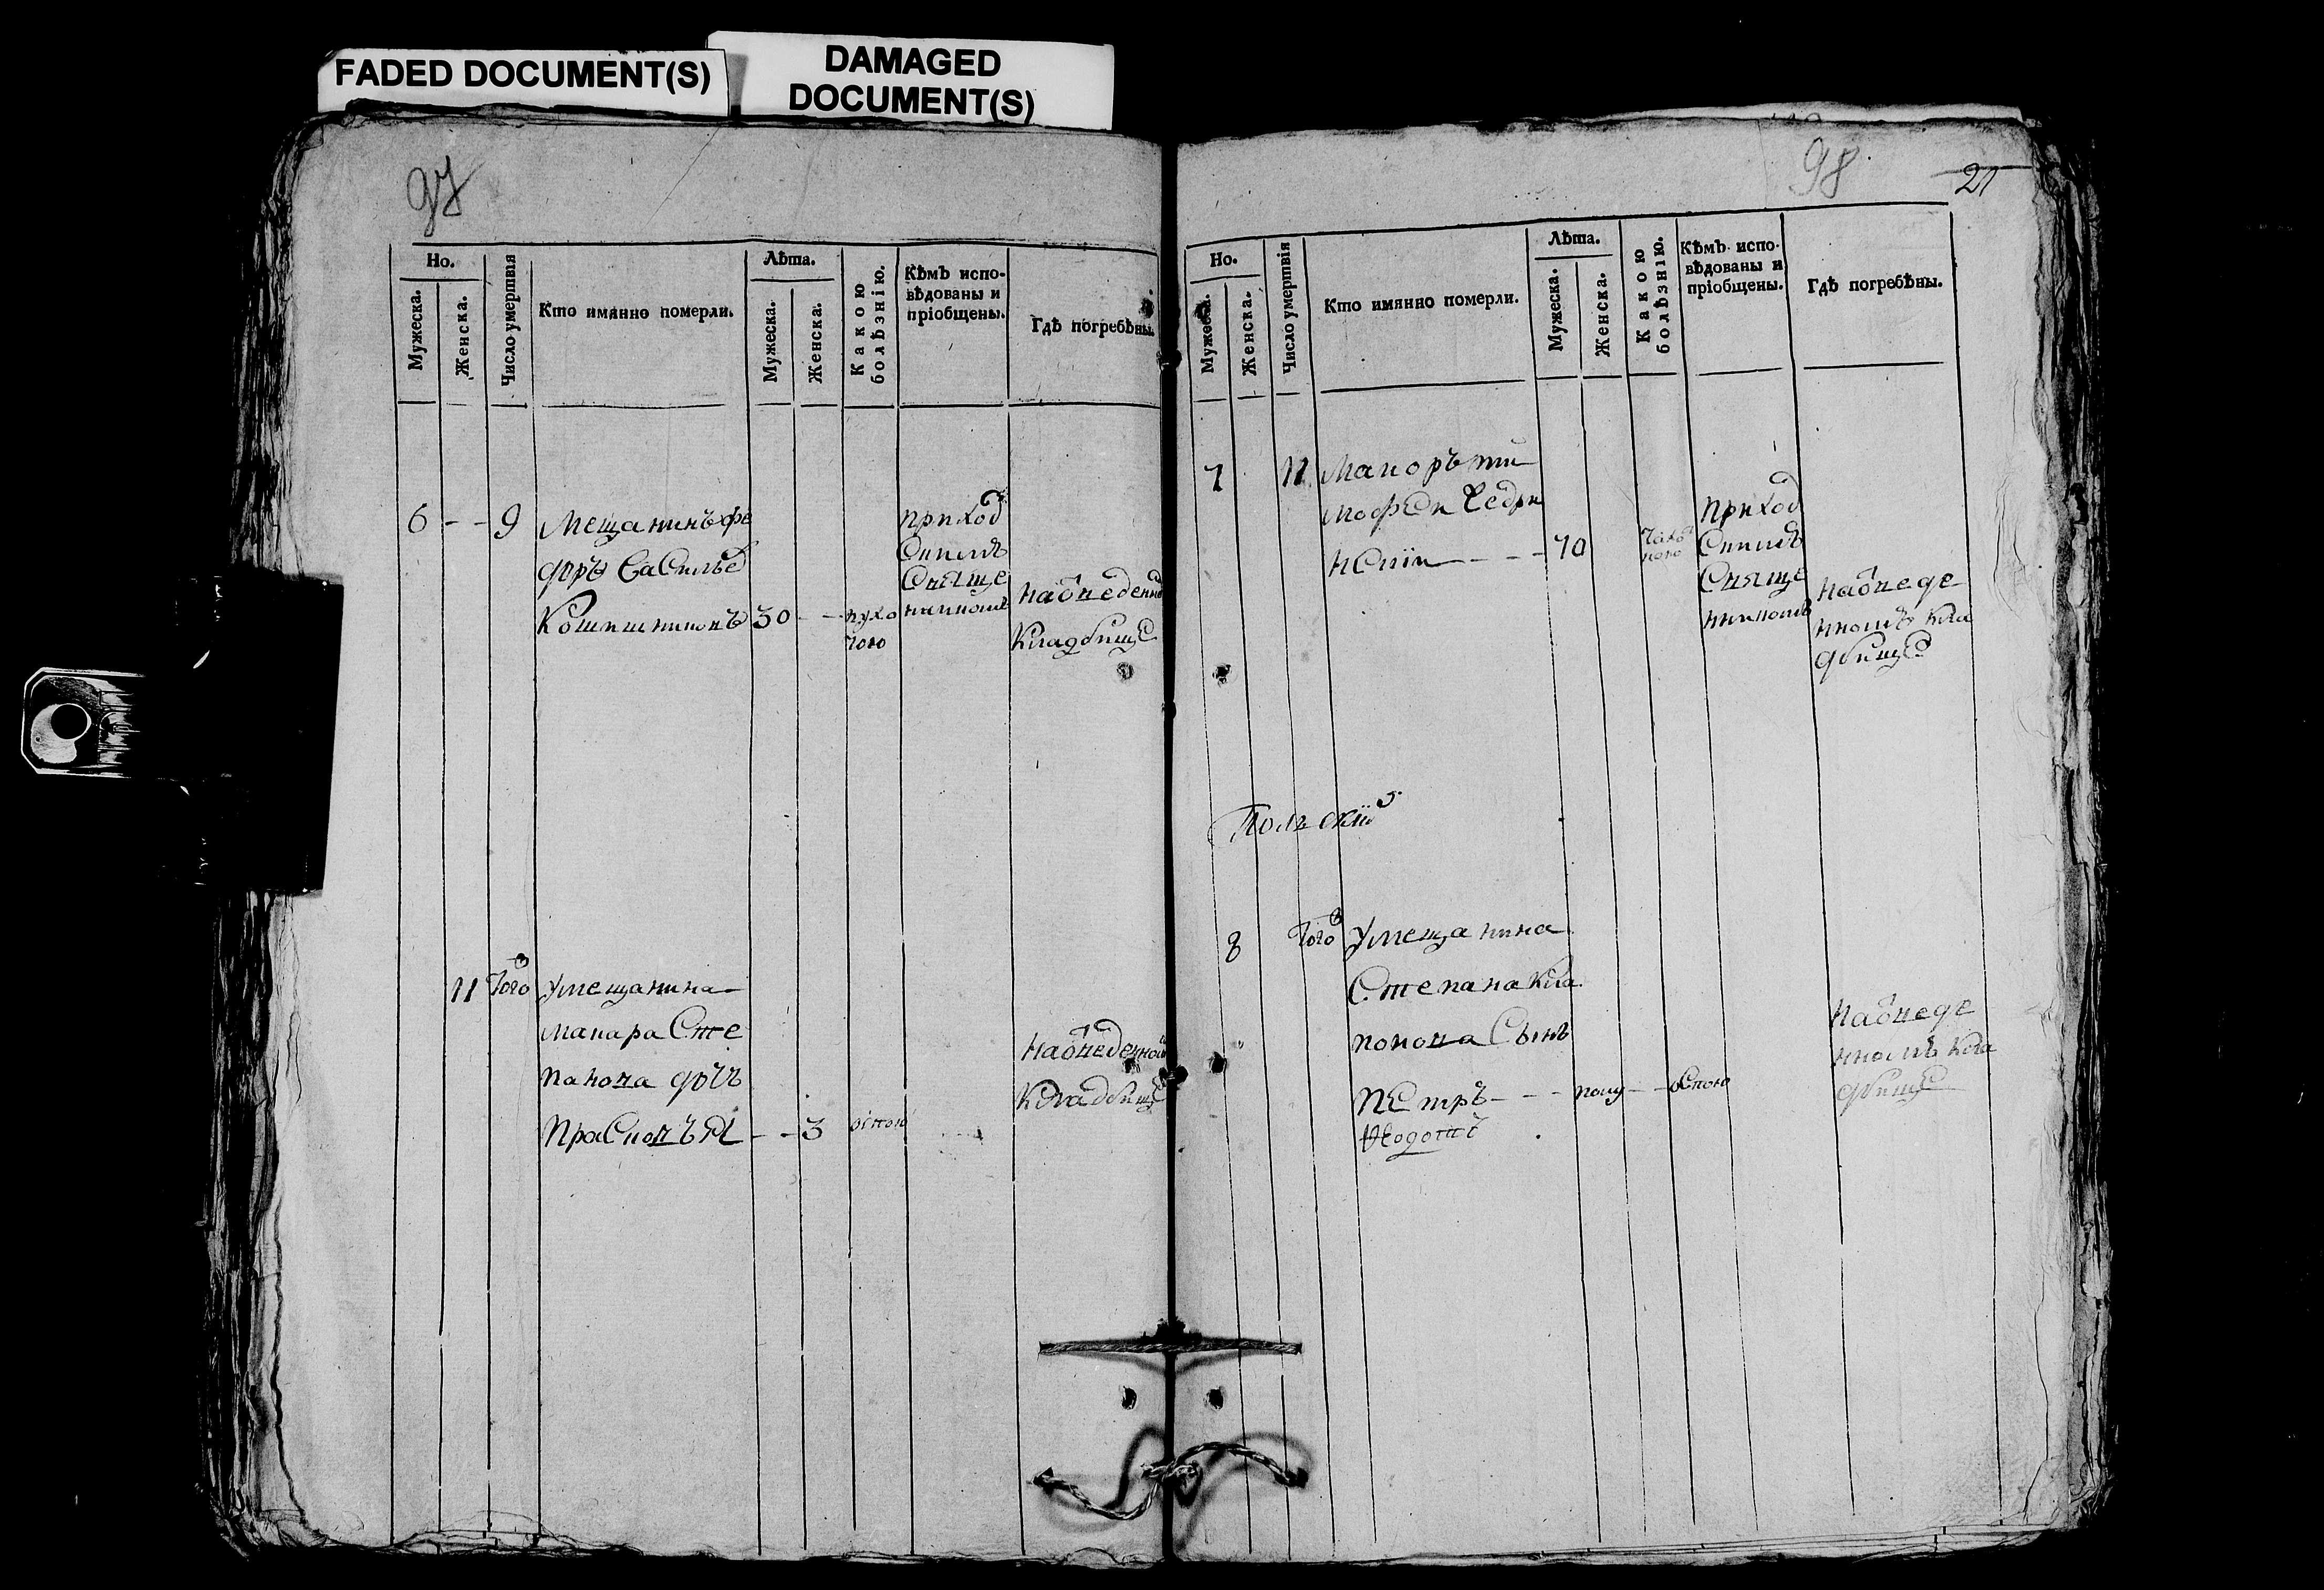 FADED DOCUMENT(S)
DAMAGED
DOCUMENT(S)
97
Но.
Мужеска.
Женска.
Число умертвія
Кто имянно померли.
Лѣта.
Мужеска.
Женска.
Какою
болѣзнію.
Кѣмъ испо-
вѣдованы и
пріобщены.
Гдѣ погребѣны.
6 - - 9 Мещанинъ Фе
доръ Василье
30 - -
чого
приход
скимъ
свяще
нникомъ
на отведенно
кладбище
11 Того у мещанина
Макара Сте
панова дочь
Прасковья - - 3 оспою
на отведенном
кладбище
98
21
Но.
Мужеска.
Женска.
Число умертвія
Кто имянно померли.
Лѣта.
Мужеска.
Женска.
Какою
болѣзнію.
Кѣмъ испо-
вѣдованы и
пріобщены.
Гдѣ погребѣны.
7 11 Маиоръ Ти
мофей
- - - 70
приход
скимъ
свяще
нникомъ
на отведе
нномъ кла
дбище
Польскій
8 Того у мещанина
Степана
сынъ
Петръ - - - полу - - оспою
на отведе
нномъ кла
дбище